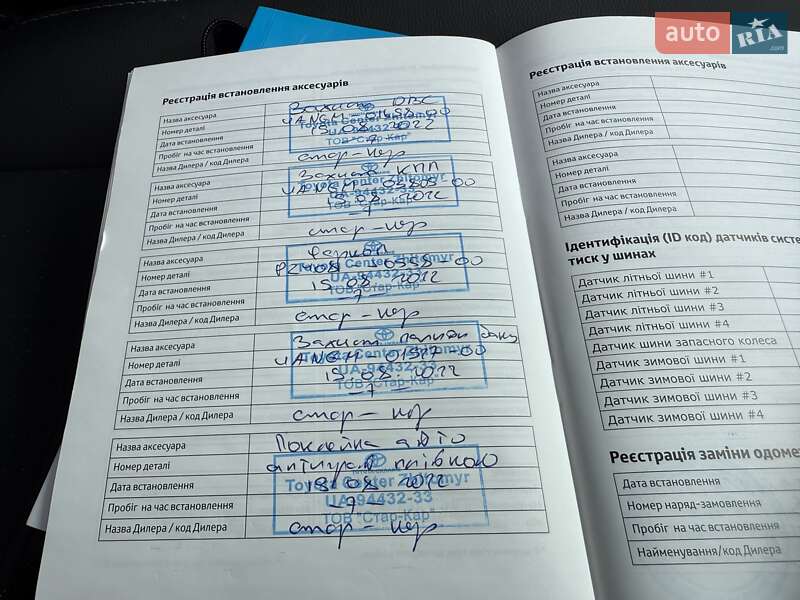 auto RIA .com
Реєстрація встановлення аксесуарів
Назва аксесуара Захист ДВС
Номер деталі
Дата встановлення 15.08.2022
Пробіг на час встановлення -7-
Назва Дилера / код Дилера стар-кар
Toyota Center Zhitomyr
UA-94432-33
ТОВ "Стар-Кар"
Назва аксесуара Захист КПП
Номер деталі
Дата встановлення 15.08.2022
Пробіг на час встановлення -7-
Назва Дилера / код Дилера стар-кар
Toyota Center Zhitomyr
UA-94432-33
ТОВ "Стар-Кар"
Назва аксесуара Фаркоп
Номер деталі
Дата встановлення 15.08.2022
Пробіг на час встановлення -7-
Назва Дилера / код Дилера стар-кар
Toyota Center Zhitomyr
UA-94432-33
ТОВ "Стар-Кар"
Назва аксесуара Захист палив баку
Номер деталі
Дата встановлення 15.08.2022
Пробіг на час встановлення -7-
Назва Дилера / код Дилера стар-кар
Toyota Center Zhitomyr
UA-94432-33
ТОВ "Стар-Кар"
Назва аксесуара Поклейка авто
Номер деталі антиграв плівкою
Дата встановлення 15.08.2022
Пробіг на час встановлення
Назва Дилера / код Дилера стар-кар
Toyota Center Zhitomyr
UA-94432-33
ТОВ "Стар-Кар"
Реєстрація встановлення аксесуарів
Назва аксесуара
Номер деталі
Дата встановлення
Пробіг на час встановлення
Назва Дилера / код Дилера
Назва аксесуара
Номер деталі
Дата встановлення
Пробіг на час встановлення
Назва Дилера / код Дилера
Ідентифікація (ID код) датчиків систе
тиск у шинах
Датчик літньої шини #1
Датчик літньої шини #2
Датчик літньої шини #3
Датчик літньої шини #4
Датчик шини запасного колеса
Датчик зимової шини #1
Датчик зимової шини #2
Датчик зимової шини #3
Датчик зимової шини #4
Реєстрація заміни одоме
Дата встановлення
Номер наряд-замовлення
Пробіг на час встановлення
Найменування/код Дилера